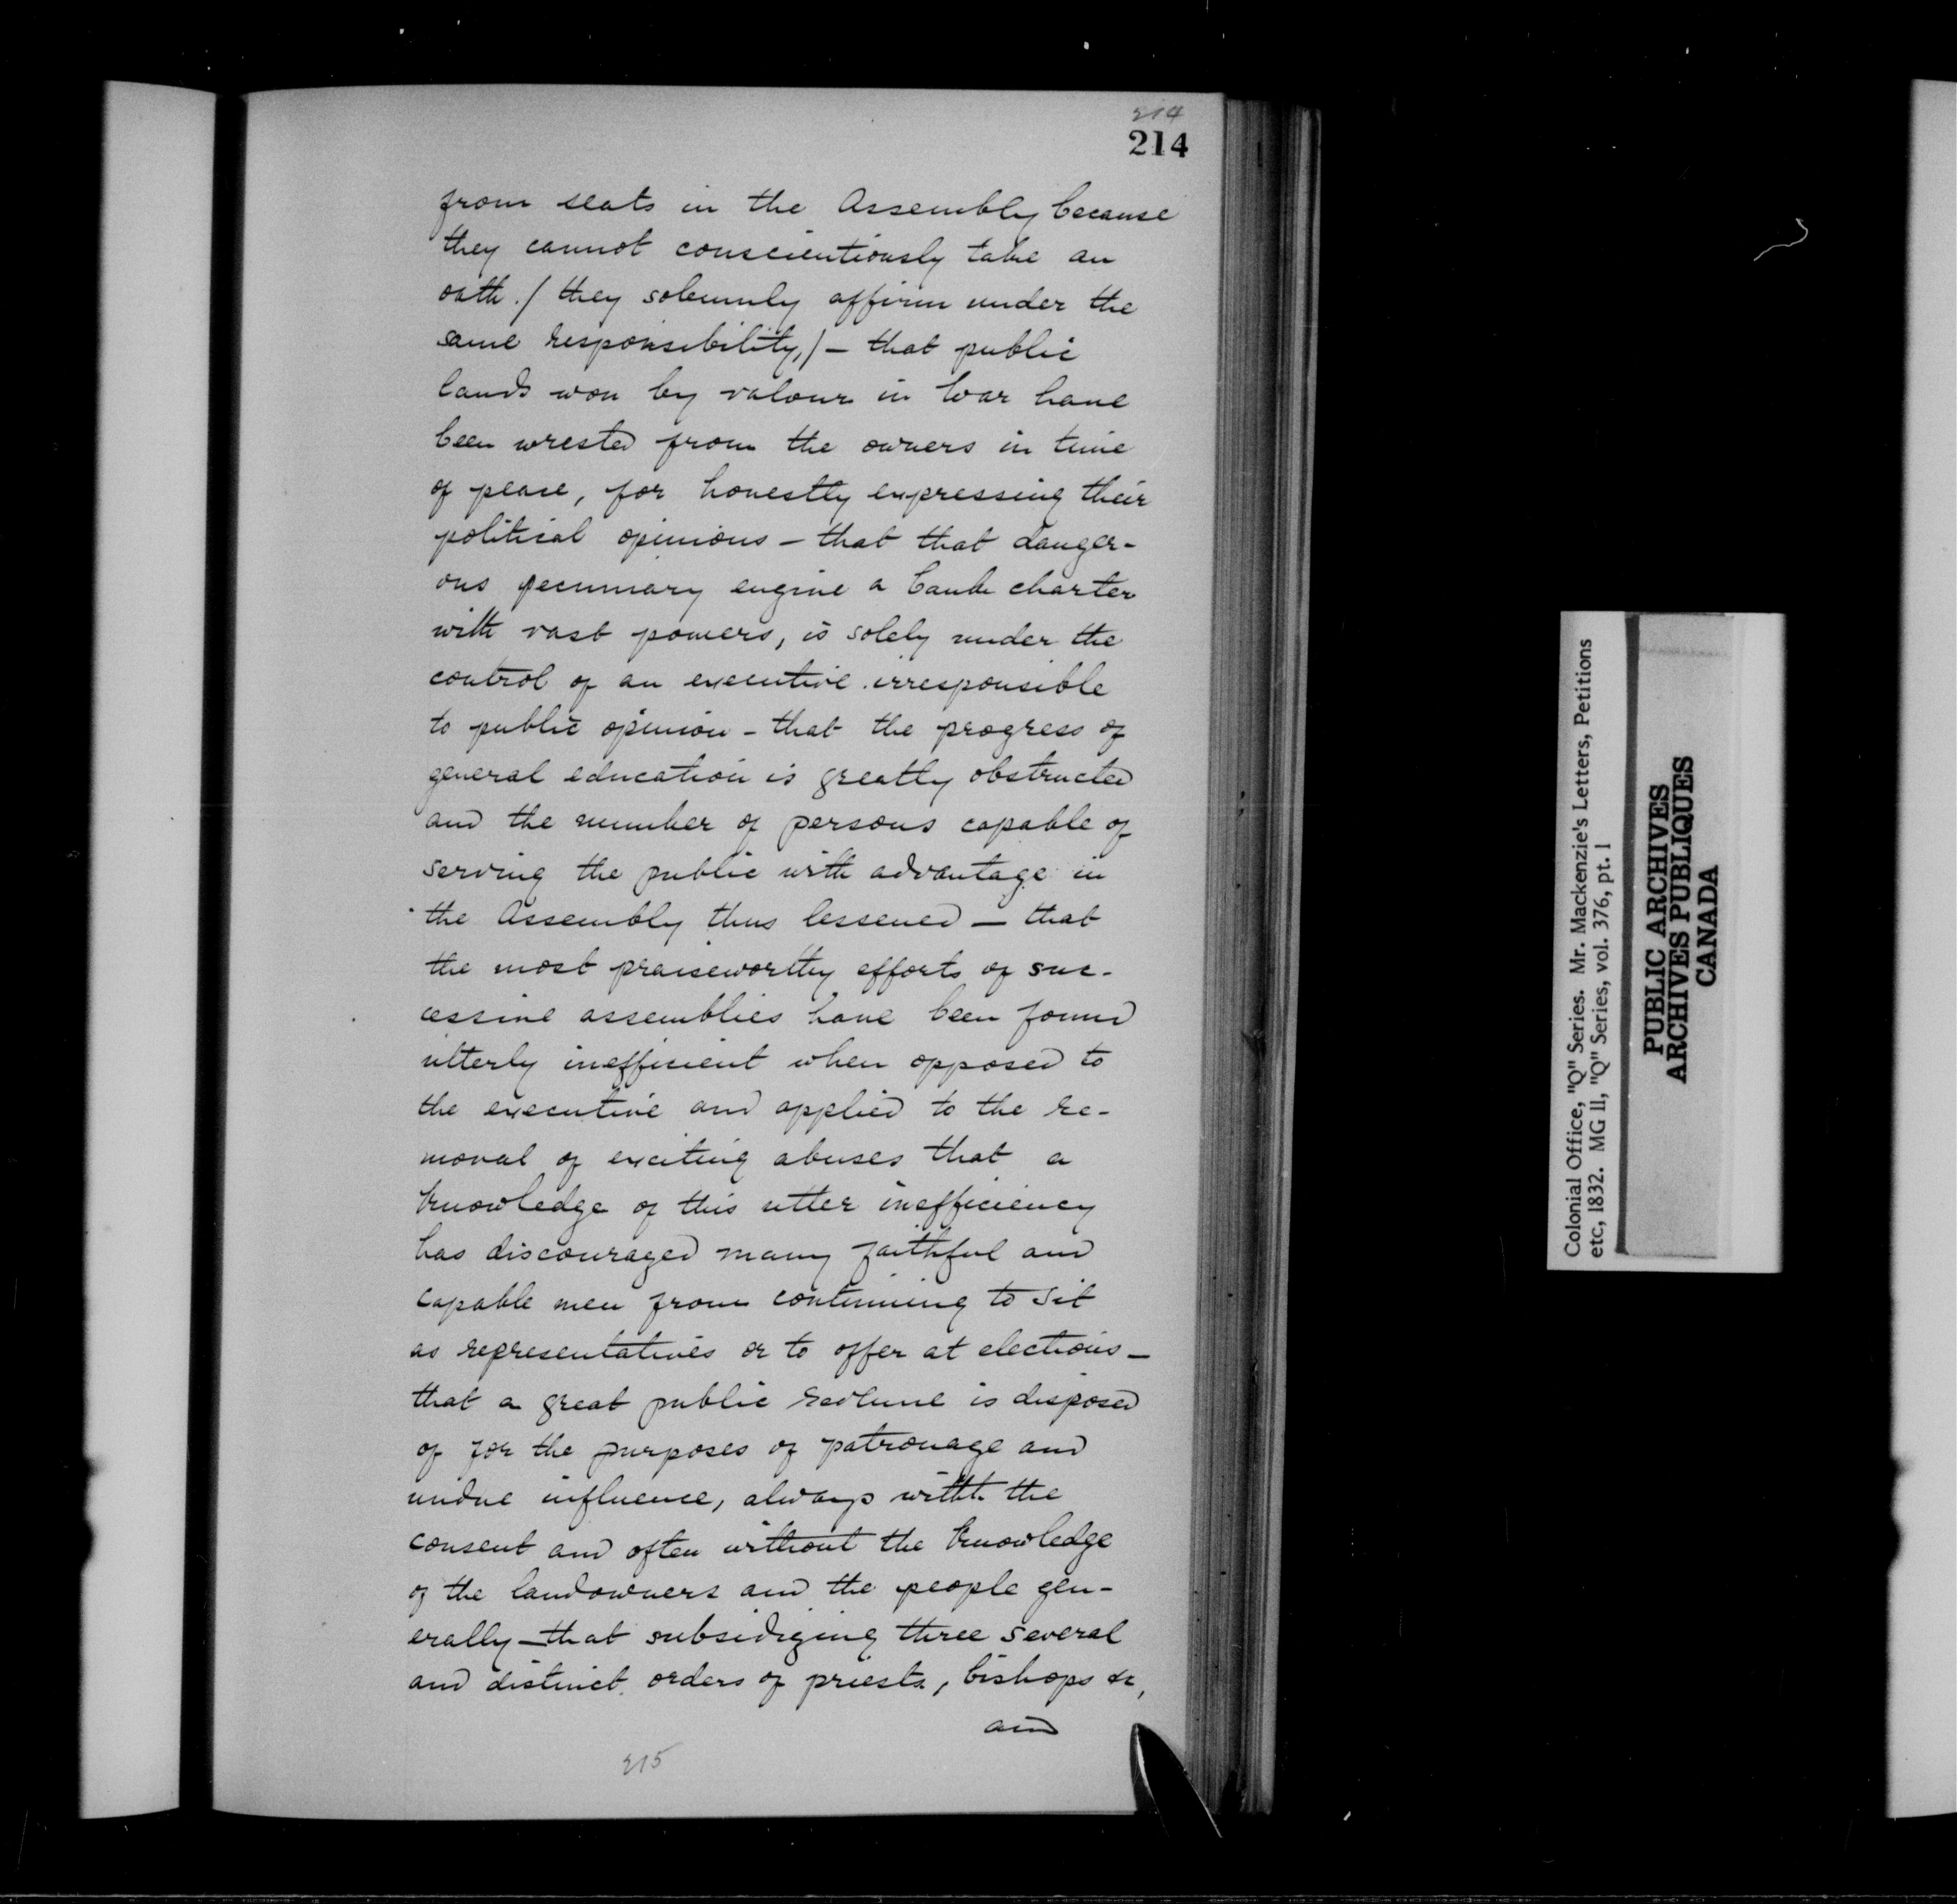 214
214
from seats in the Assembly because
they cannot conscientiously take an
oath. / they solemnly affirm under the
same responsibility,/ - that public
lands won by valour in War have
been wrested from the owners in time
of peace, for honestly expressing their
political opinions - that that danger-
ous pecuniary engine a bank charter
with vast powers, is solely under the
control of an executive irresponsible
to public opinion - that the progress of
general education is greatly obstructed
and the number of persons capable of
serving the public with advantage in
the Assembly thus lessened - that
the most praiseworthy efforts of suc-
cessive assemblies have been found
utterly inefficient when opposed to
the executive and applied to the re-
moval of exciting abuses that a
knowledge of this utter inefficiency
has discouraged many faithful and
capable men from continuing to sit
as representatives or to offer at elections -
that a great public revenue is disposed
of for the purposes of patronage and
undue influence, always with the
consent and often without the knowledge
of the landowners and the people gen-
erally - that subsidizing three several
and distinct orders of priests, bishops &c,
and
215
Colonial Office, "Q" Series. Mr. Mackenzie's Letters, Petitions
etc, 1832. MG 11, "Q" Series, vol. 376, pt. 1
PUBLIC ARCHIVES
ARCHIVES PUBLIQUES
CANADA